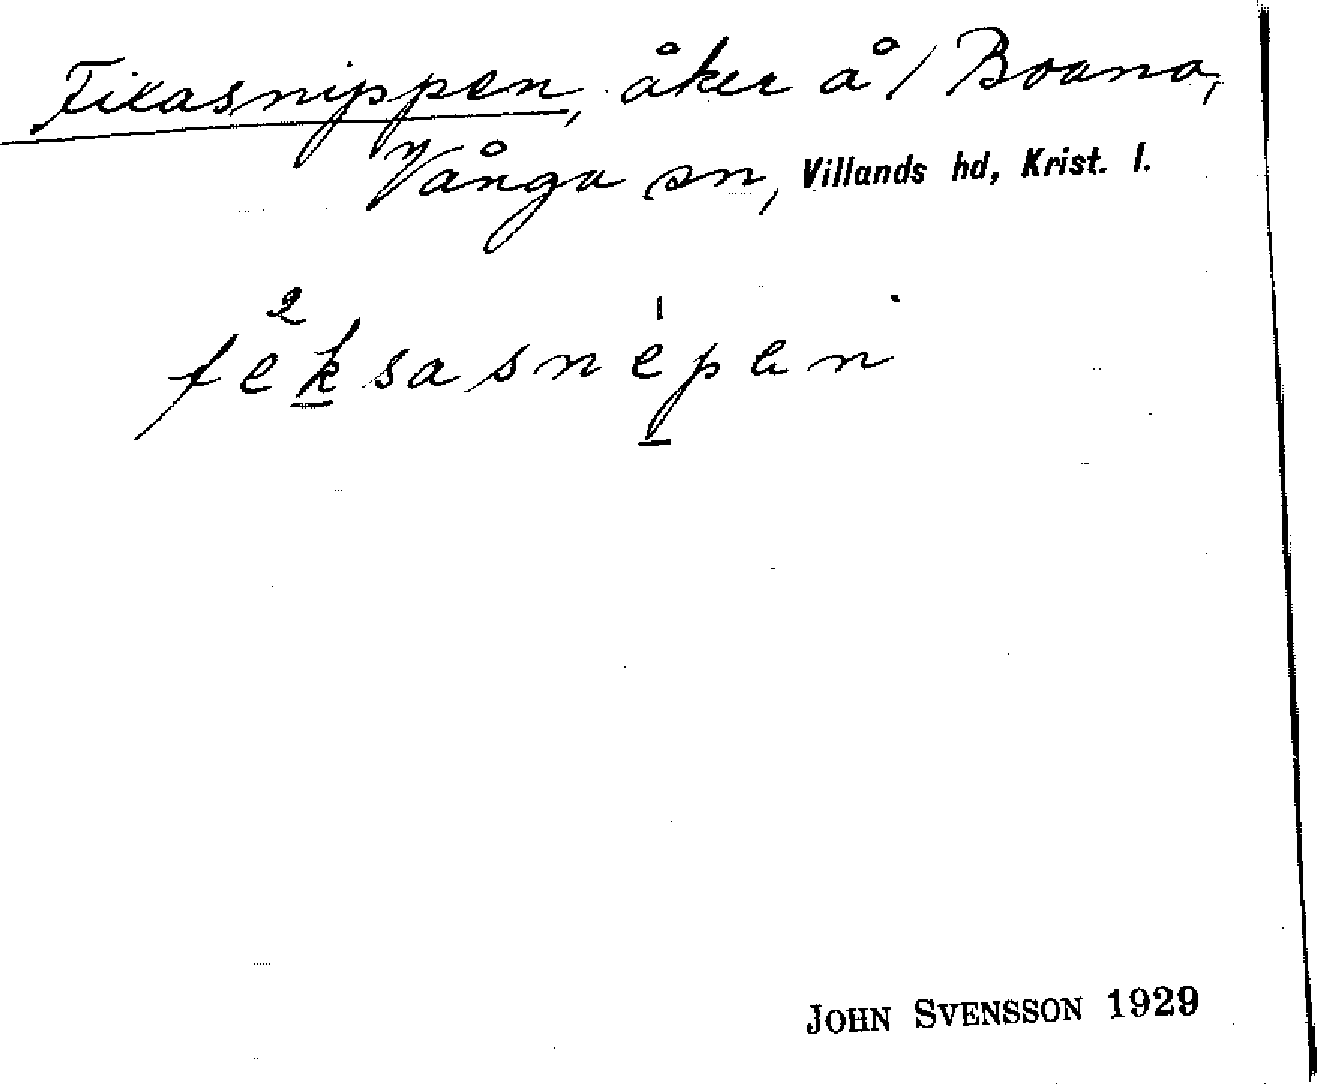 Fixasnippen, åker å / Boana,
Vånga sn, Villands hd, Krist. l.
fe²ksasne¹pen
JOHN SVENSSON 1929